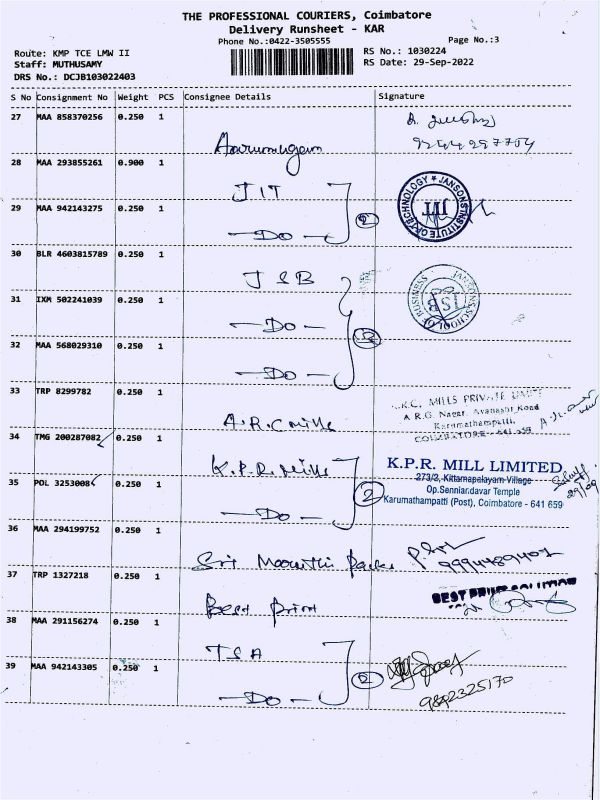 THE PROFESSIONAL COURIERS, Coimbatore
Delivery Runsheet - KAR
Phone No.:0422-3505555
Page No.:3
Route: KMP TCE LMW II
RS No.: 1030224
Staff: MUTHUSAMY
RS Date: 29-Sep-2022
DRS No.: DCJB103022403
S No Consignment No Weight PCS Consignee Details Signature
27 MAA 858370256 0.250 1
Aarumugam
28 MAA 293855261 0.900 1
JIT
JANSONS INSTITUTE OF TECHNOLOGY
JIT
29 MAA 942143275 0.250 1
— Do — 2
30 BLR 4603815789 0.250 1
JSB
JANSONS SCHOOL OF BUSINESS
31 IXM 502241039 0.250 1
— Do —
32 MAA 568029310 0.250 1
— Do —
33 TRP 8299782 0.250 1
A.R.C mills
MILLS PRIVATE LIMIT
A R.G. Nagar, Avanashi Road
Karumathampatti,
COIMBATORE - 641 659
34 TMG 200287082 0.250 1
K.P.R. Mills
K.P.R. MILL LIMITED
273/3, Kittamapalayam Village
Op.Senniandavar Temple
Karumathampatti (Post), Coimbatore - 641 659
29/09
35 POL 3253008 0.250 1
— Do — 2
36 MAA 294199752 0.250 1
Sri Moorthi Packs
9994489402
37 TRP 1327218 0.250 1
Best Print
BEST PRINT SOLUTION
38 MAA 291156274 0.250 1
TSA
39 MAA 942143305 0.250 1
— Do — 2
9842325170